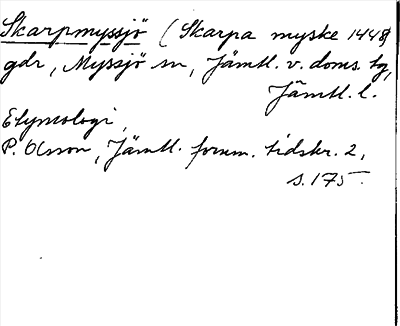 Skarpmyssjö (Skarpa myske 1448)
gdr, Myssjö sn, Jämtl. v. doms. tg,
Jämtl. l.
Etymologi,
P. Olsson, Jämtl. fornm. tidskr. 2,
s. 175.